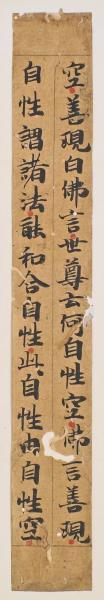 空善現白佛言世尊云何自性空佛言善現
自性謂諸法能和合自性此自性由自性空